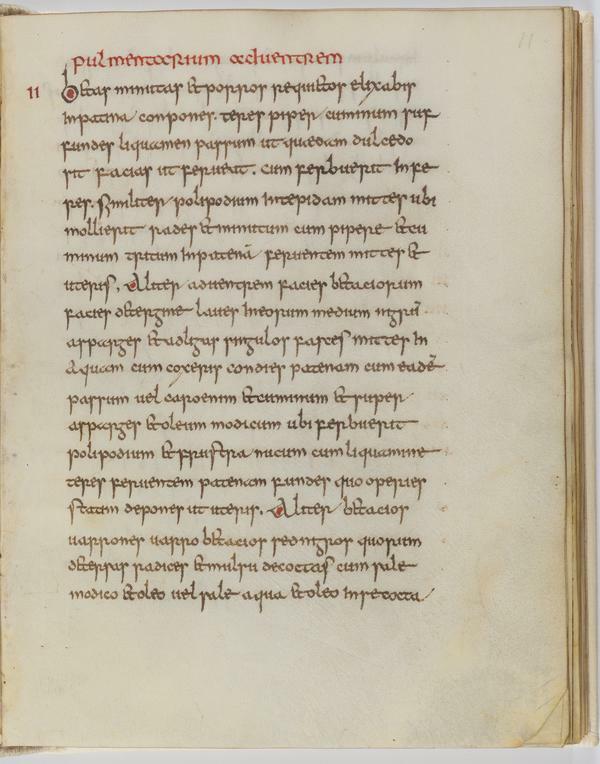 pulmentarium ad uentrem
II betas minutas et porros requietos elixabis
In patina conpones. teres piper cuminum suf
fundes liquamen passum ut quaedam dulcedo
sit facias ut ferueat. cum ferbuerit Infe
res. Similiter polipodium In tepidam mittes ubi
mollierit rades et minutum cum pipere et cu
minum tritum In patenā feruentem mittes et
uteris. Aliter ad uentrem facies betaciorum
facies detergine laues In eorum medium nitrū
asparges et adligas singulos fasces mittes In
aquam cum coxeris condies patenam cum eadē
passum uel caroenum et cuminum et super
asparges et oleum modicum ubi ferbuerit
polipodium et frustra nucum cum liquamine
teres feruentem patenam fundes quo operies
statim depones ut uteris. Aliter betacios
uarrones uarro betacios sed nigros quorum
detersas radices et mulsu decoctas cum sale
modico et oleo uel sale aqua et oleo In se cocta